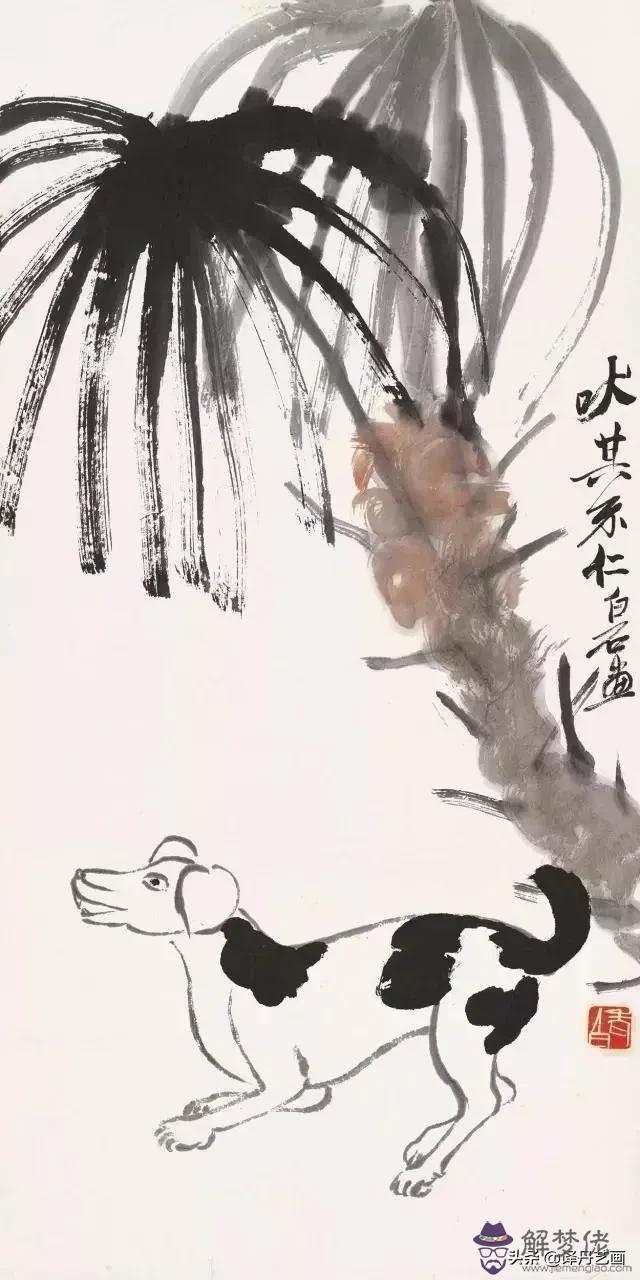 吠其不仁白石画
解梦佬
头条 @译丹艺画
www.jiemenglao.com